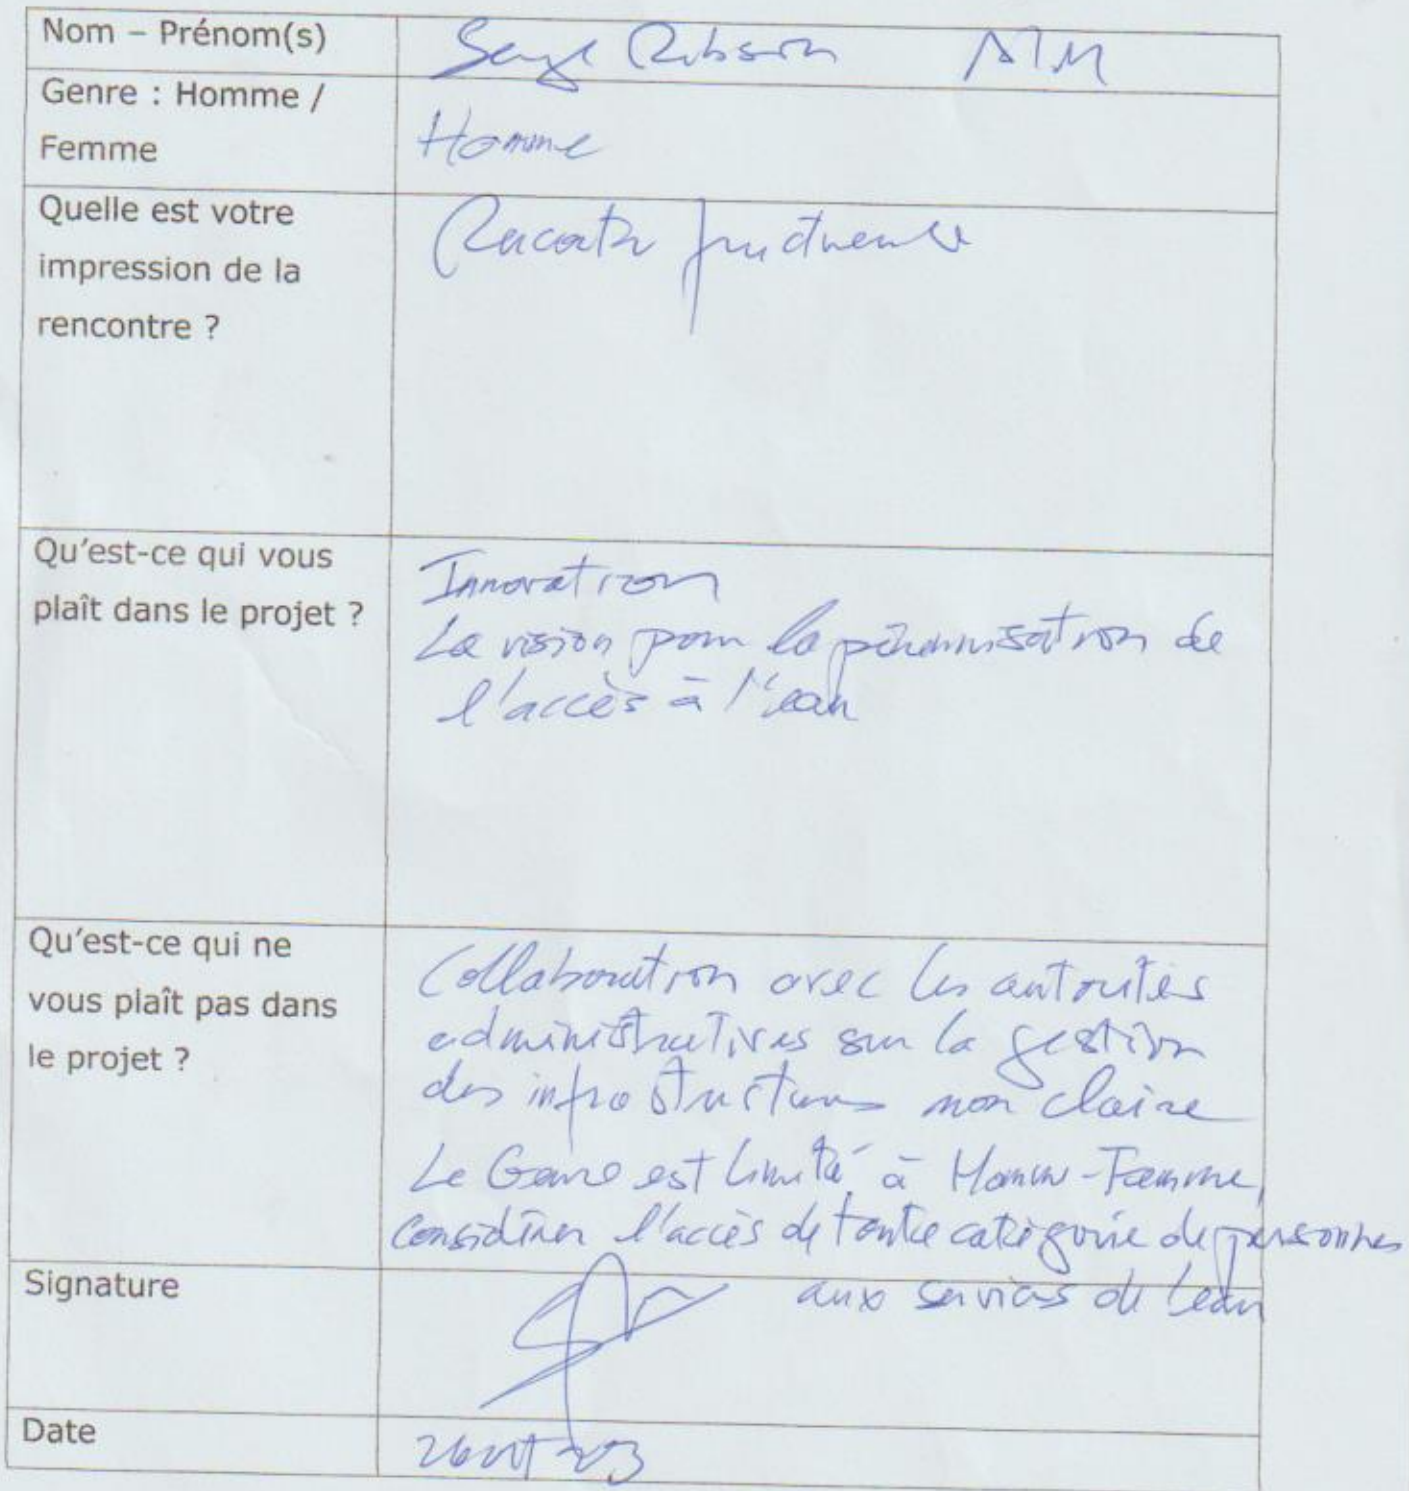 Nom – Prénom(s)
Serge Robson AIM
Genre : Homme /
Femme
Homme
Quelle est votre
impression de la
rencontre ?
Rencontre fructueuse
Qu'est-ce qui vous
plaît dans le projet ?
Innovation
La vision pour la pérennisation de
l'accès à l'eau
Qu'est-ce qui ne
vous plaît pas dans
le projet ?
Collaboration avec les autorités
administratives sur la gestion
des infrastructures non claire
Le Genre est limité à Homme-Femme,
considérer l'accès de toute catégorie de personnes
aux services de l'eau
Signature
Date